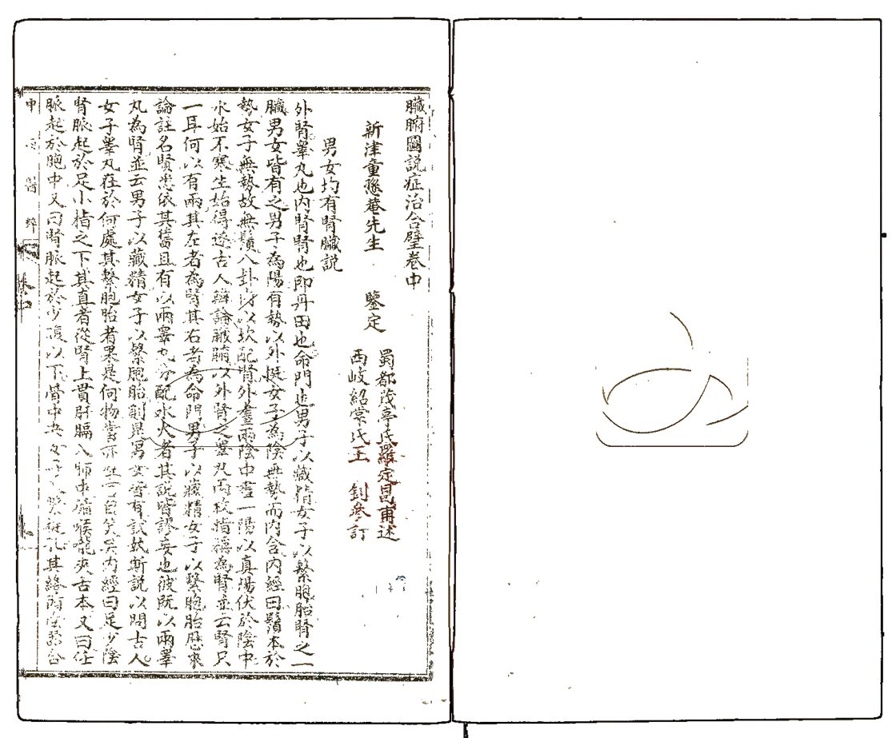 臟腑圖說症治合璧卷中
新津童懋菴先生 鑒定
蜀都茂亭氏羅定昌甫述
西岐紹棠氏王 釗參訂
男女均有腎臟説
外腎睾丸也内腎腎也即丹田也命門也男子以藏精女子以繫胞胎腎之一
臟男女皆有之男子為陽有勢以外挺女子為陰無勢而内含内經曰鬚本於
勢女子無勢故無鬚八卦以坎配腎外畫兩陰中畫一陽以真陽伏於陰中
水始不寒生始得遂古人辨論臟腑以外腎之睾丸兩枚指稱為腎並云腎只
一耳何以有兩其左者為腎其右者為命門男子以藏精女子以繫胞胎歷來
論註名賢悉依其舊且有以兩睾丸分配水火者其說皆謬妄也彼既以兩睾
丸為腎並云男子以藏精女子以繫胞胎則是男女皆有試執斯説以問古人
女子睾丸在於何處其繫胞胎者果是何物當亦自笑矣内經曰足少陰
腎脈起於足小指之下其直者從腎上貫肝膈入肺中循喉嚨夾舌本又曰任
脈起於胞中又曰腎脈起於少腹以下骨中央女子入繫廷孔其絡循陰器合
中 醫粹